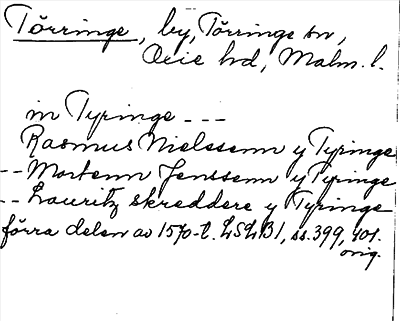 Törringe, by, Törringe sn,
Oxie hd, Malm. l.
in Tyringe ---
Rasmus Nielssenn y Tyringe
-- Mortenn Jenssenn y Tyringe
-- Lauritz skreddere y Tyringe
förra delen av 1570-t. LSLB1, ss. 399, 401.
orig.